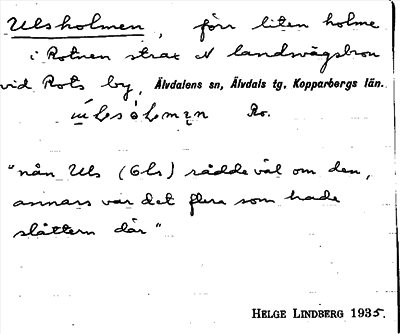 Ulsholmen, förr liten holme
i Rotnen strax N landsvägsbron
vid Rots by, Älvdalens sn, Älvdals tg, Kopparbergs län.
Ro.
"nån Uls (Ols) rådde väl om den,
annars var det flera som hade
slåttern där"
HELGE LINDBERG 1935.